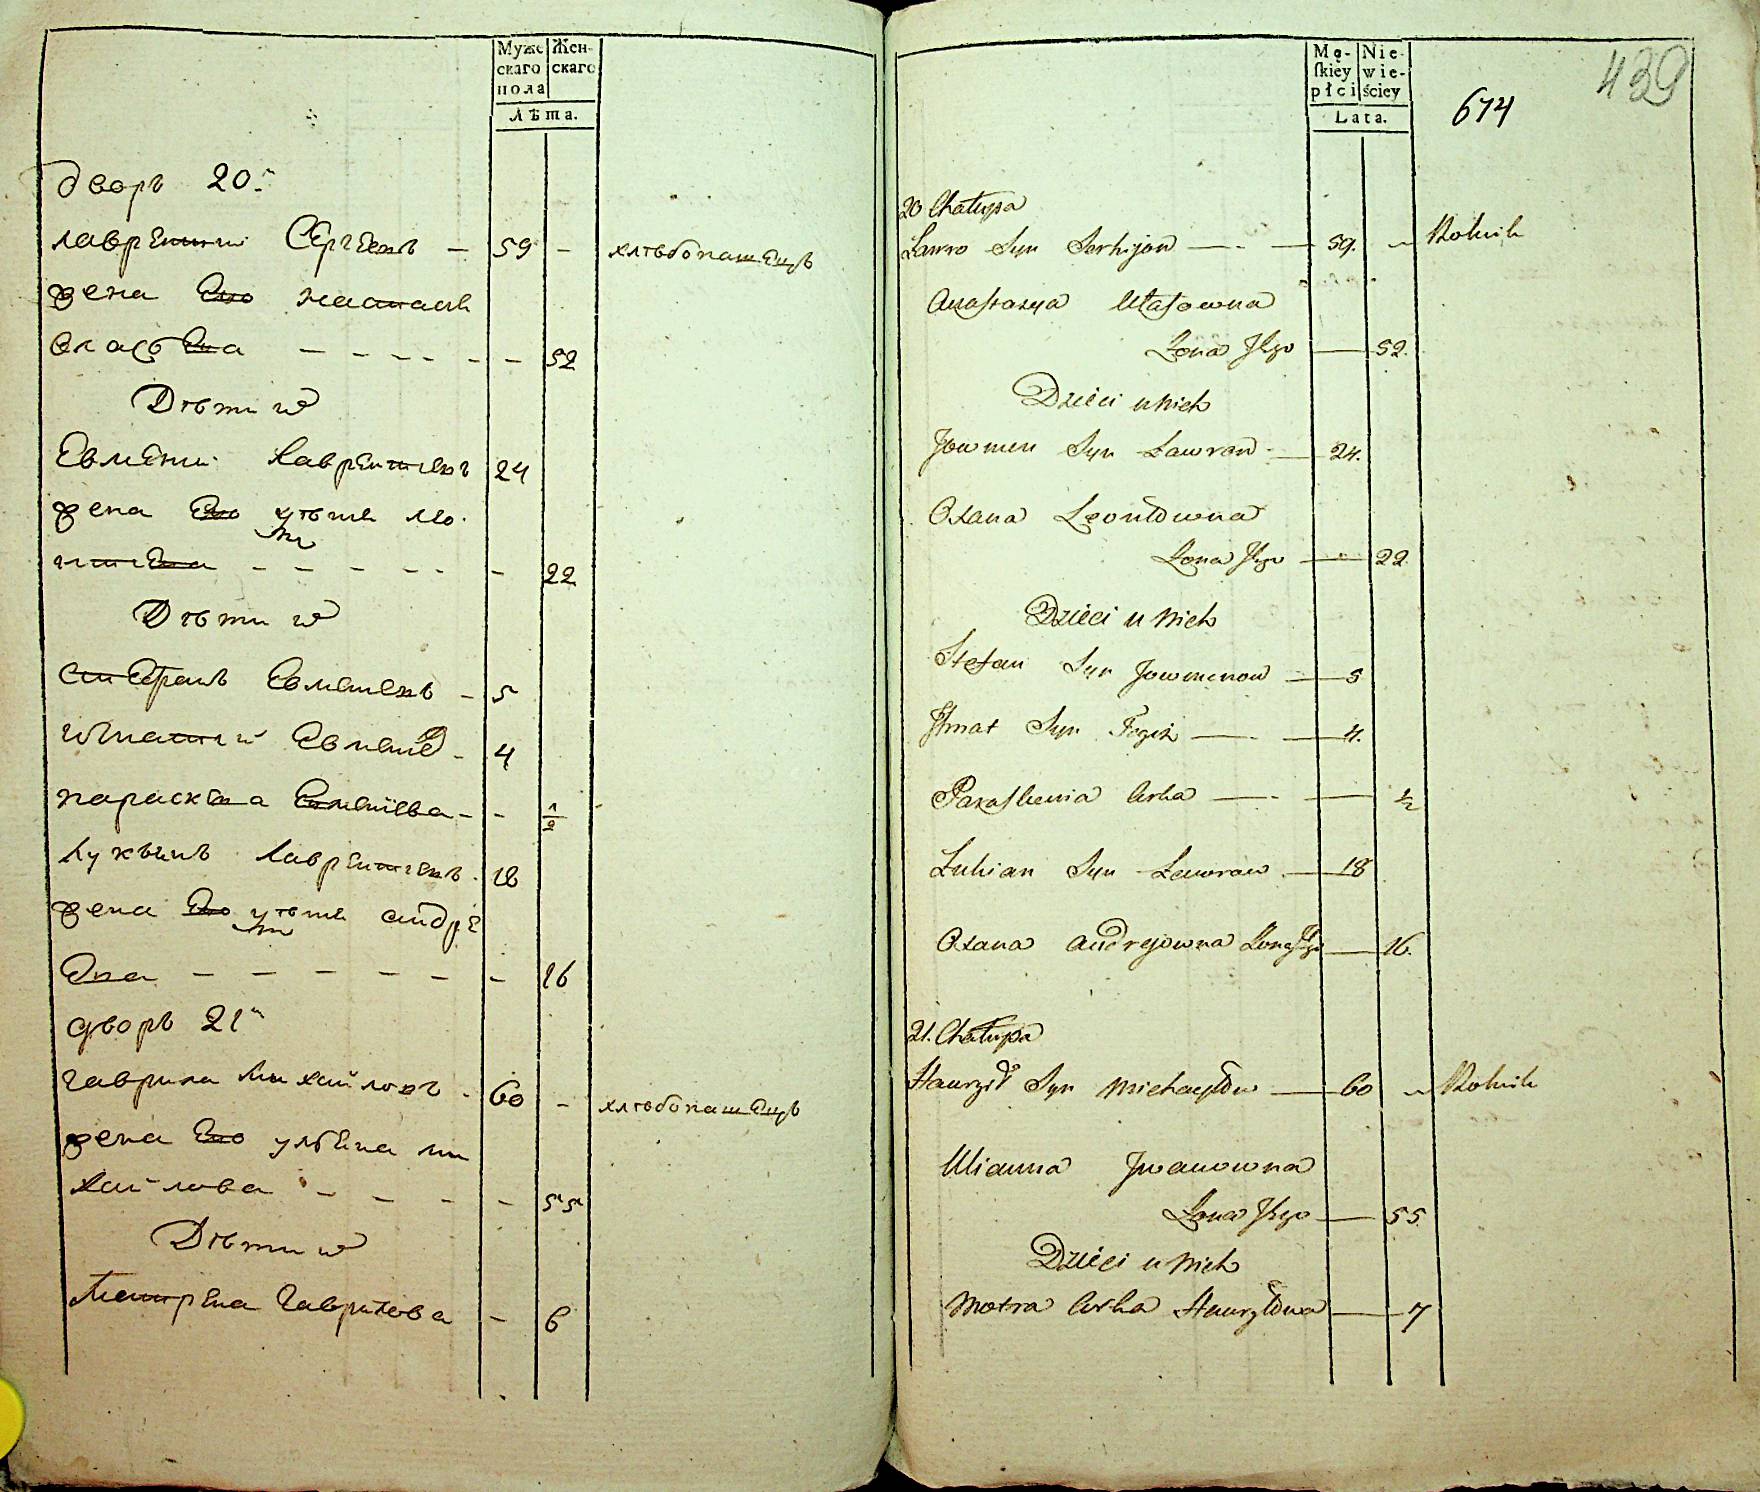 Муже
скаго
пола
Жен-
скаго
Лѣта.
дворъ 20й
лаврентий Сергеевъ — 59 - хлѣбопашецъ
жена Его настасия
власова - - - - - - 52
Дѣти их
Евмений Лаврентиевъ 24
жена Его
- - - - - 22
Дѣти их
стефанъ Евмениевъ - 5
игнатий Евмениев - 4
параскева Евмениева - - 1/2
Лукьянъ Лаврентиевъ - 18
жена Его андре
Ева - - - - - - 16
дворъ 21й
гаврила Михайловъ - 60 - хлѣбопашецъ
жена Его улияна ми
хайлова - - - - 55
Дѣти их
Матрена Гаврилова - 6
Mę-
skiey
płci
Nie-
wie-
ściey
Lata.
674
439
20 Chałupa
Lawro Syn Serhijow — 59. Rolnik
Anastazya Własowna
Żona Jego — 52.
Dzieci u Nich
Jowmen Syn Lawrow — 24.
Oxana Leontowna
Żona Jego — 22
Dzieci u Nich
Stefan Syn Jowmenow — 5
Ihnat Syn Tegoż — 4.
Paraskewia Corka — 1/2
Lukian Syn Lawrow — 18
Oxana Andrejowna Żona Jego — 16.
21. Chałupa
Hawryło Syn Michayłow — 60 Rolnik
Ulianna Jwanowna
Żona Jego — 55.
Dzieci u Nich
Motra Corka Hawryłowa — 7